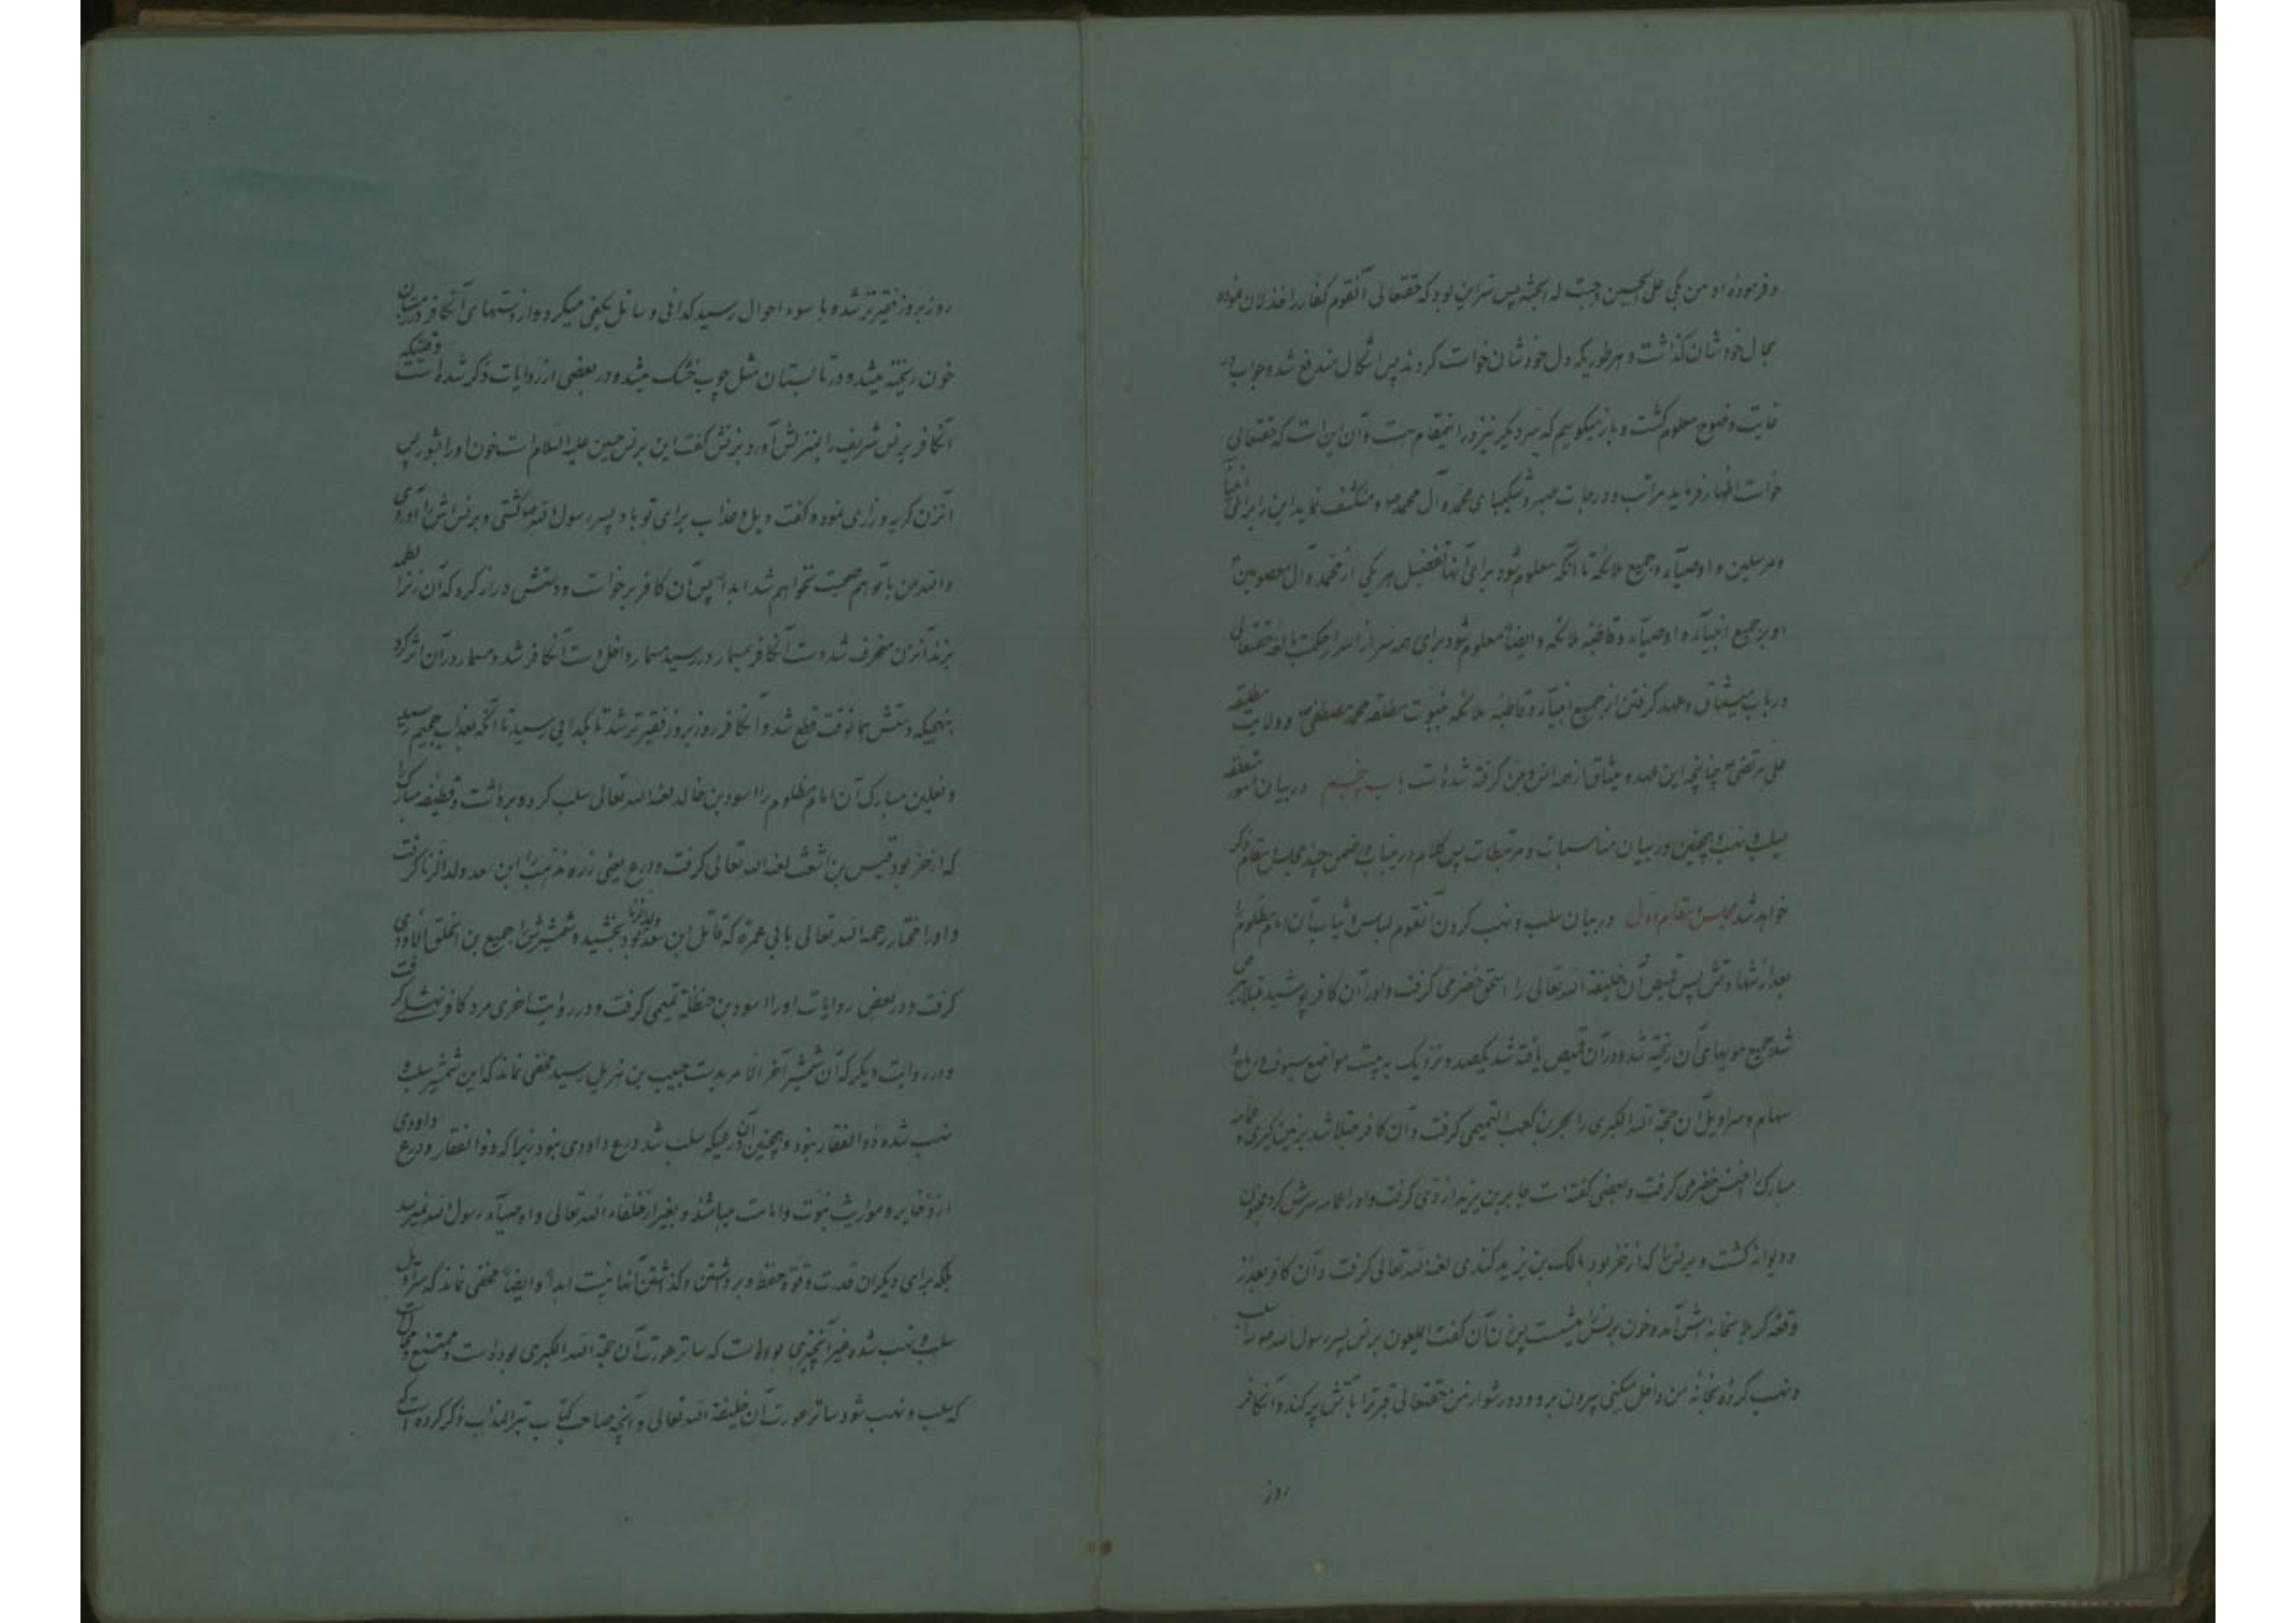 و فرموده او من بکی علی الحسین وجبت له الجنّة پس سرّ این بود که حقتعالی آنقوم کفّار را خذلان نموده
بحال خودشان گذاشت و هر طوریکه دل خودشان خواست کردند پس اشکال مندفع شد و جواب در
غایت وضوح معلوم گشت و باز میگوییم که سرّ دیگر نیز در اینمقام هست و آن این است که حقتعالی
خواست اظهار فرماید مراتب و درجات صبر و شکیبای محمد و آل محمد ص و منکشف نماید این را برای انبیآء
و مرسلین و اوصیآء و جمیع ملائکه تا آنکه معلوم شود برای آنها تفضیل هر یکی از محمد و آل معصومین
او بر جمیع انبیآء و اوصیآء و قاطبه ملائکه و ایضا معلوم شود برای همه سرّ از اسرار حکمت بالغه حقتعالی
در باب میثاق و عهد گرفتن از جمیع انبیآء و قاطبه ملائکه بنبوت مطلقه محمد مصطفی ص و ولایت مطلقه
علی مرتضی ع چنانچه این عهد و میثاق از همه انس و جن گرفته شده است باب پنجم در بیان امور متعلقه
بسلب و نهب و همچنین در بیان مناسبات و مرتبطات پس کلام در اینباب در ضمن چند مجلس و مقام ذکر
خواهد شد مجلس و مقام اول در بیان سلب و نهب کردن آنقوم لباس و ثیاب آن امام مظلوم را
بعد از شهادتش پس قمیص آن خلیفة الله تعالی را اسحق حضرمی گرفت و او را آن کافر پوشید مبتلا ببرص
شد جمیع مویهای آن ریخته شد و در آن قمیص یافته شد یکصد و نزدیک به بیست مواضع سیوف و رماح و
سهام و سراویل آن حجة الله الکبری را بحر بن کعب التمیمی گرفت و آن کافر مبتلا شد بزمین گیری و عمامه
مبارک را اخنس حضرمی گرفت و بعضی گفته است جابر بن یزید ازدی گرفت و او را عمامه سرش کرد مجنون
و دیوانه گشت و برنس را که از خز بود مالک بن یزید کندی لعنه الله تعالی گرفت و آن کافر بعد از
وقعه کربلا بخانه اش آمد و خون برنس را میشست پس زن آن گفت ایملعون برنس پسر رسول الله ص را سلب
و نهب کرده بخانه من داخل میکنی بیرون برو و دور شو از من حقتعالی قبر ترا با آتش پر کند و آنکافر
روز
روز بروز فقیرتر شد و با سوء احوال رسید گدائی و سائل بکفی میکرد و از دستهای آنکافر در زمستان
خون ریخته میشد و در تابستان مثل چوب خشک میشد و در بعضی از روایات ذکر شده است وقتیکه
آنکافر برنس شریف را بمنزلش آورد بزنش گفت این برنس حسین علیه السلام است خون او را بشور پس
آنزن گریه و زاری نمود و گفت ویل و عذاب برای تو باد پسر رسول الله ص را کشتی و برنس اش را آوردی
والله من با تو هم صحبت نخواهم شد ابداً پس آن کافر برخواست و دستش دراز کرد که آن زنرا لطمه
بزند آنزن منحرف شد دست آنکافر بمسمار در رسید مسمار داخل دست آنکافر شد و مسمار در آن اثر کرد
بنهجیکه دستش همانوقت قطع شد و آنکافر روز بروز فقیرتر شد تا بگدایی رسید تا آنکه بعذاب جحیم رسید
و نعلین مبارک آن امام مظلوم را اسود بن خالد لعنه الله تعالی سلب کرد و برداشت و قطیفه مبارک را
که از خز بود قیس بن اشعث لعنه الله تعالی گرفت و درع یعنی زره مذهب را ابن سعد ولد الزنا گرفت
و او را مختار رحمه الله تعالی بابی عمره که قاتل ابن سعد ولد الزنا بود بخشید و شمشیرش را جمیع بن الخلق الاودی
گرفت و در بعض روایات او را اسود بن حنظلة تمیمی گرفت و در روایت اخری مرد کافر نهشلی گرفت
و در روایت دیگر که آن شمشیر آخر الامر بدست حبیب بن هزیل رسید مخفی نماند که این شمشیر سلب و
نهب شده ذو الفقار نبود و همچنین آن درعیکه سلب شد درع داودی نبود زیرا که ذو الفقار و درع داودی
از ذخایر و مواریث نبوت و امامت میباشند و بغیر از خلفاء الله تعالی و اوصیآء رسول الله نمیرسد
بلکه برای دیگران قدرت و قوّه حفظ و برداشتن و گذاشتن آنها نیست ابداً و ایضا مخفی نماند که سراویل
سلب و نهب شده غیر آنچیزی بوده است که ساتر عورت آن حجة الله الکبری بوده است و ممتنع و محال است
که سلب و نهب شود ساتر عورت آن خلیفة الله تعالی و آنچه صاحب کتاب تبر المذاب ذکر کرده است که